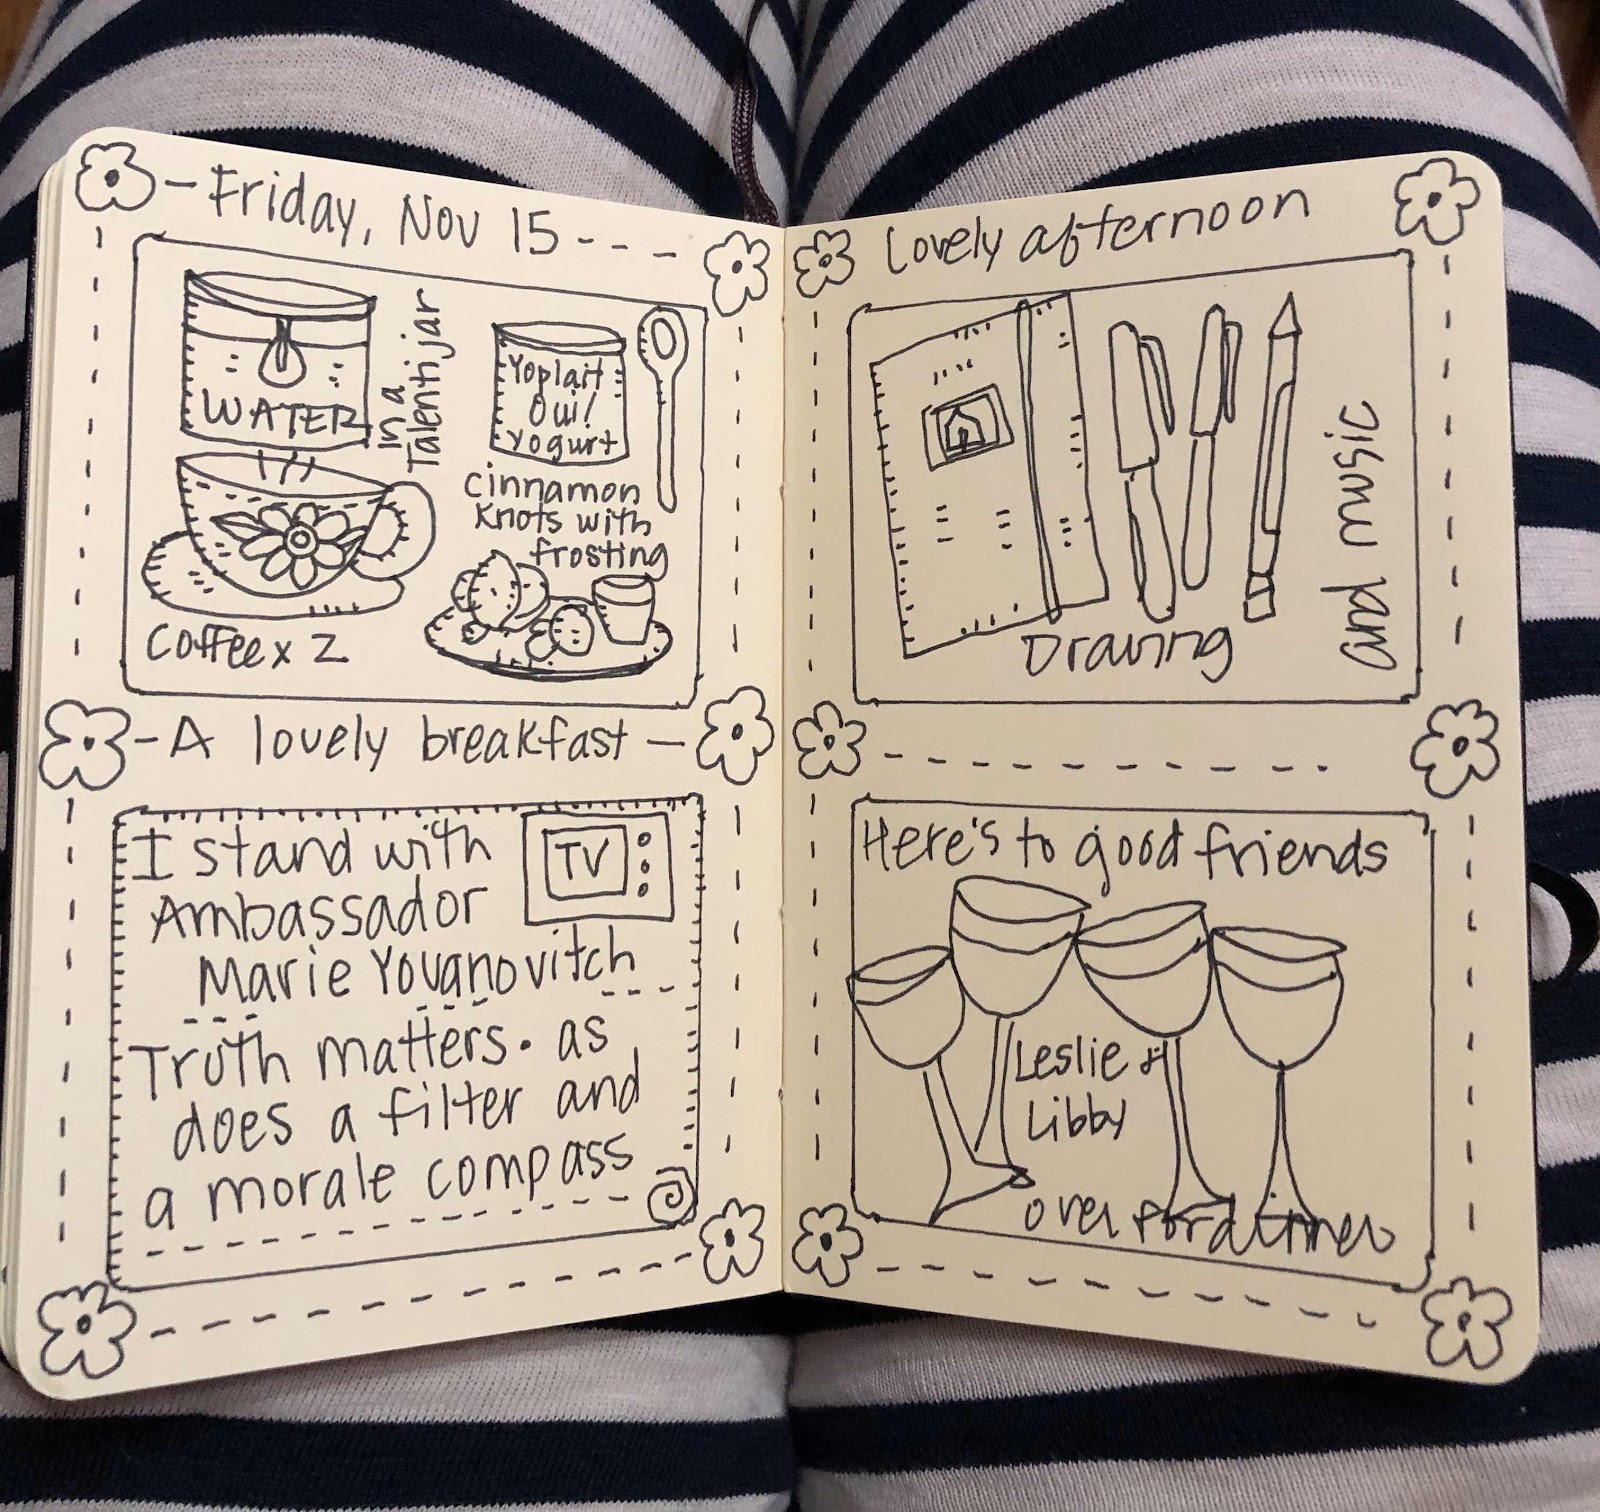 Friday, Nov 15
WATER
in a
Talenti jar
Yoplait
Oui!
Yogurt
cinnamon
knots with
frosting
Coffee x 2
A lovely breakfast
I stand with
TV
Ambassador
Marie Yovanovitch
Truth matters. as
does a filter and
a morale compass
Lovely afternoon
Drawing
and music
Here's to good friends
Leslie &
Libby
over for dinner